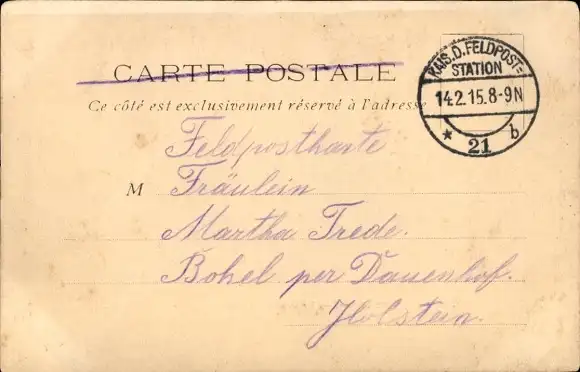 CARTE POSTALE
Ce côté est exclusivement réservé à l'adresse
KAIS. D. FELDPOST-
STATION
14.2.15.8-9N
* 21 b
Feldpostkarte
M Fräulein
Martha Trede.
Bohel per Dauenhof.
Holstein.